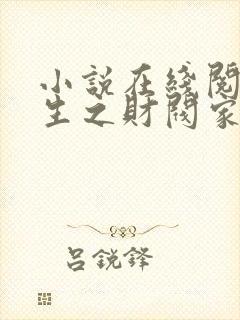 小說在綫閱
生之財閥家
吕銳鋒